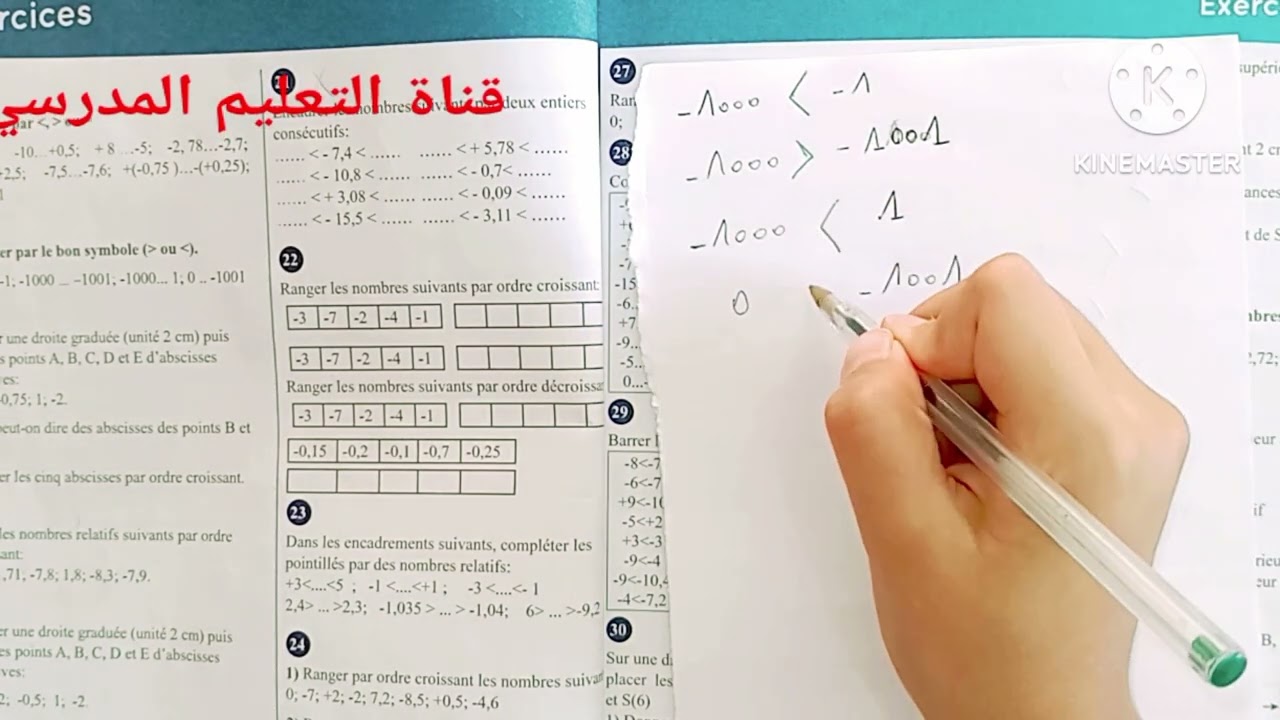 rcices
Exerc
قناة التعليم المدرسي
-10...+0,5; + 8 ...-5; -2, 78...-2,7;
-7,5...-7,6; +(-0,75 )...-(+0,25);
er par le bon symbole (> ou <).
-1; -1000 ... -1001; -1000... 1; 0 .. -1001
r une droite graduée (unité 2 cm) puis
s points A, B, C, D et E d'abscisses
0,75; 1; -2.
peut-on dire des abscisses des points B et
er les cinq abscisses par ordre croissant.
les nombres relatifs suivants par ordre
,71; -7,8; 1,8; -8,3; -7,9.
er une droite graduée (unité 2 cm) puis
es points A, B, C, D et E d'abscisses
2; -0,5; 1; -2.
deux entiers
consécutifs:
...... < - 7,4 < ...... ...... < + 5,78 < ......
...... < - 10,8 < ...... ...... < - 0,7< ......
...... < + 3,08 < ...... ...... < - 0,09 < ......
...... < - 15,5 < ...... ...... < - 3,11 < ......
22
Ranger les nombres suivants par ordre croissant:
-3 -7 -2 -4 -1
-3 -7 -2 -4 -1
Ranger les nombres suivants par ordre décroissa
-3 -7 -2 -4 -1
-0,15 -0,2 -0,1 -0,7 -0,25
23
Dans les encadrements suivants, compléter les
pointillés par des nombres relatifs:
+3<....<5 ; -1 <....<+1 ; -3 <....<- 1
2,4> ... >2,3; -1,035 > ... > -1,04; 6> ... >-9,2
24
1) Ranger par ordre croissant les nombres suiva
0; -7; +2; -2; 7,2; -8,5; +0,5; -4,6
27
Ran
0;
28
Co
-15
-6..
+7
-9..
-5..
0...-
29
Barrer l
-8<-7
-6<-7
+9<-10
-5<+2
+3<-3
-9<-4
-9<-10,4
-4<-7,2
30
Sur une d
placer les
et S(6)
-1000 < -1
-1000 > -1001
-1000 < 1
0 -1001
K
KINEMASTER
supéri
nt 2 c
ances
t de S
2,72;
eur
if
rieu
eur
B,